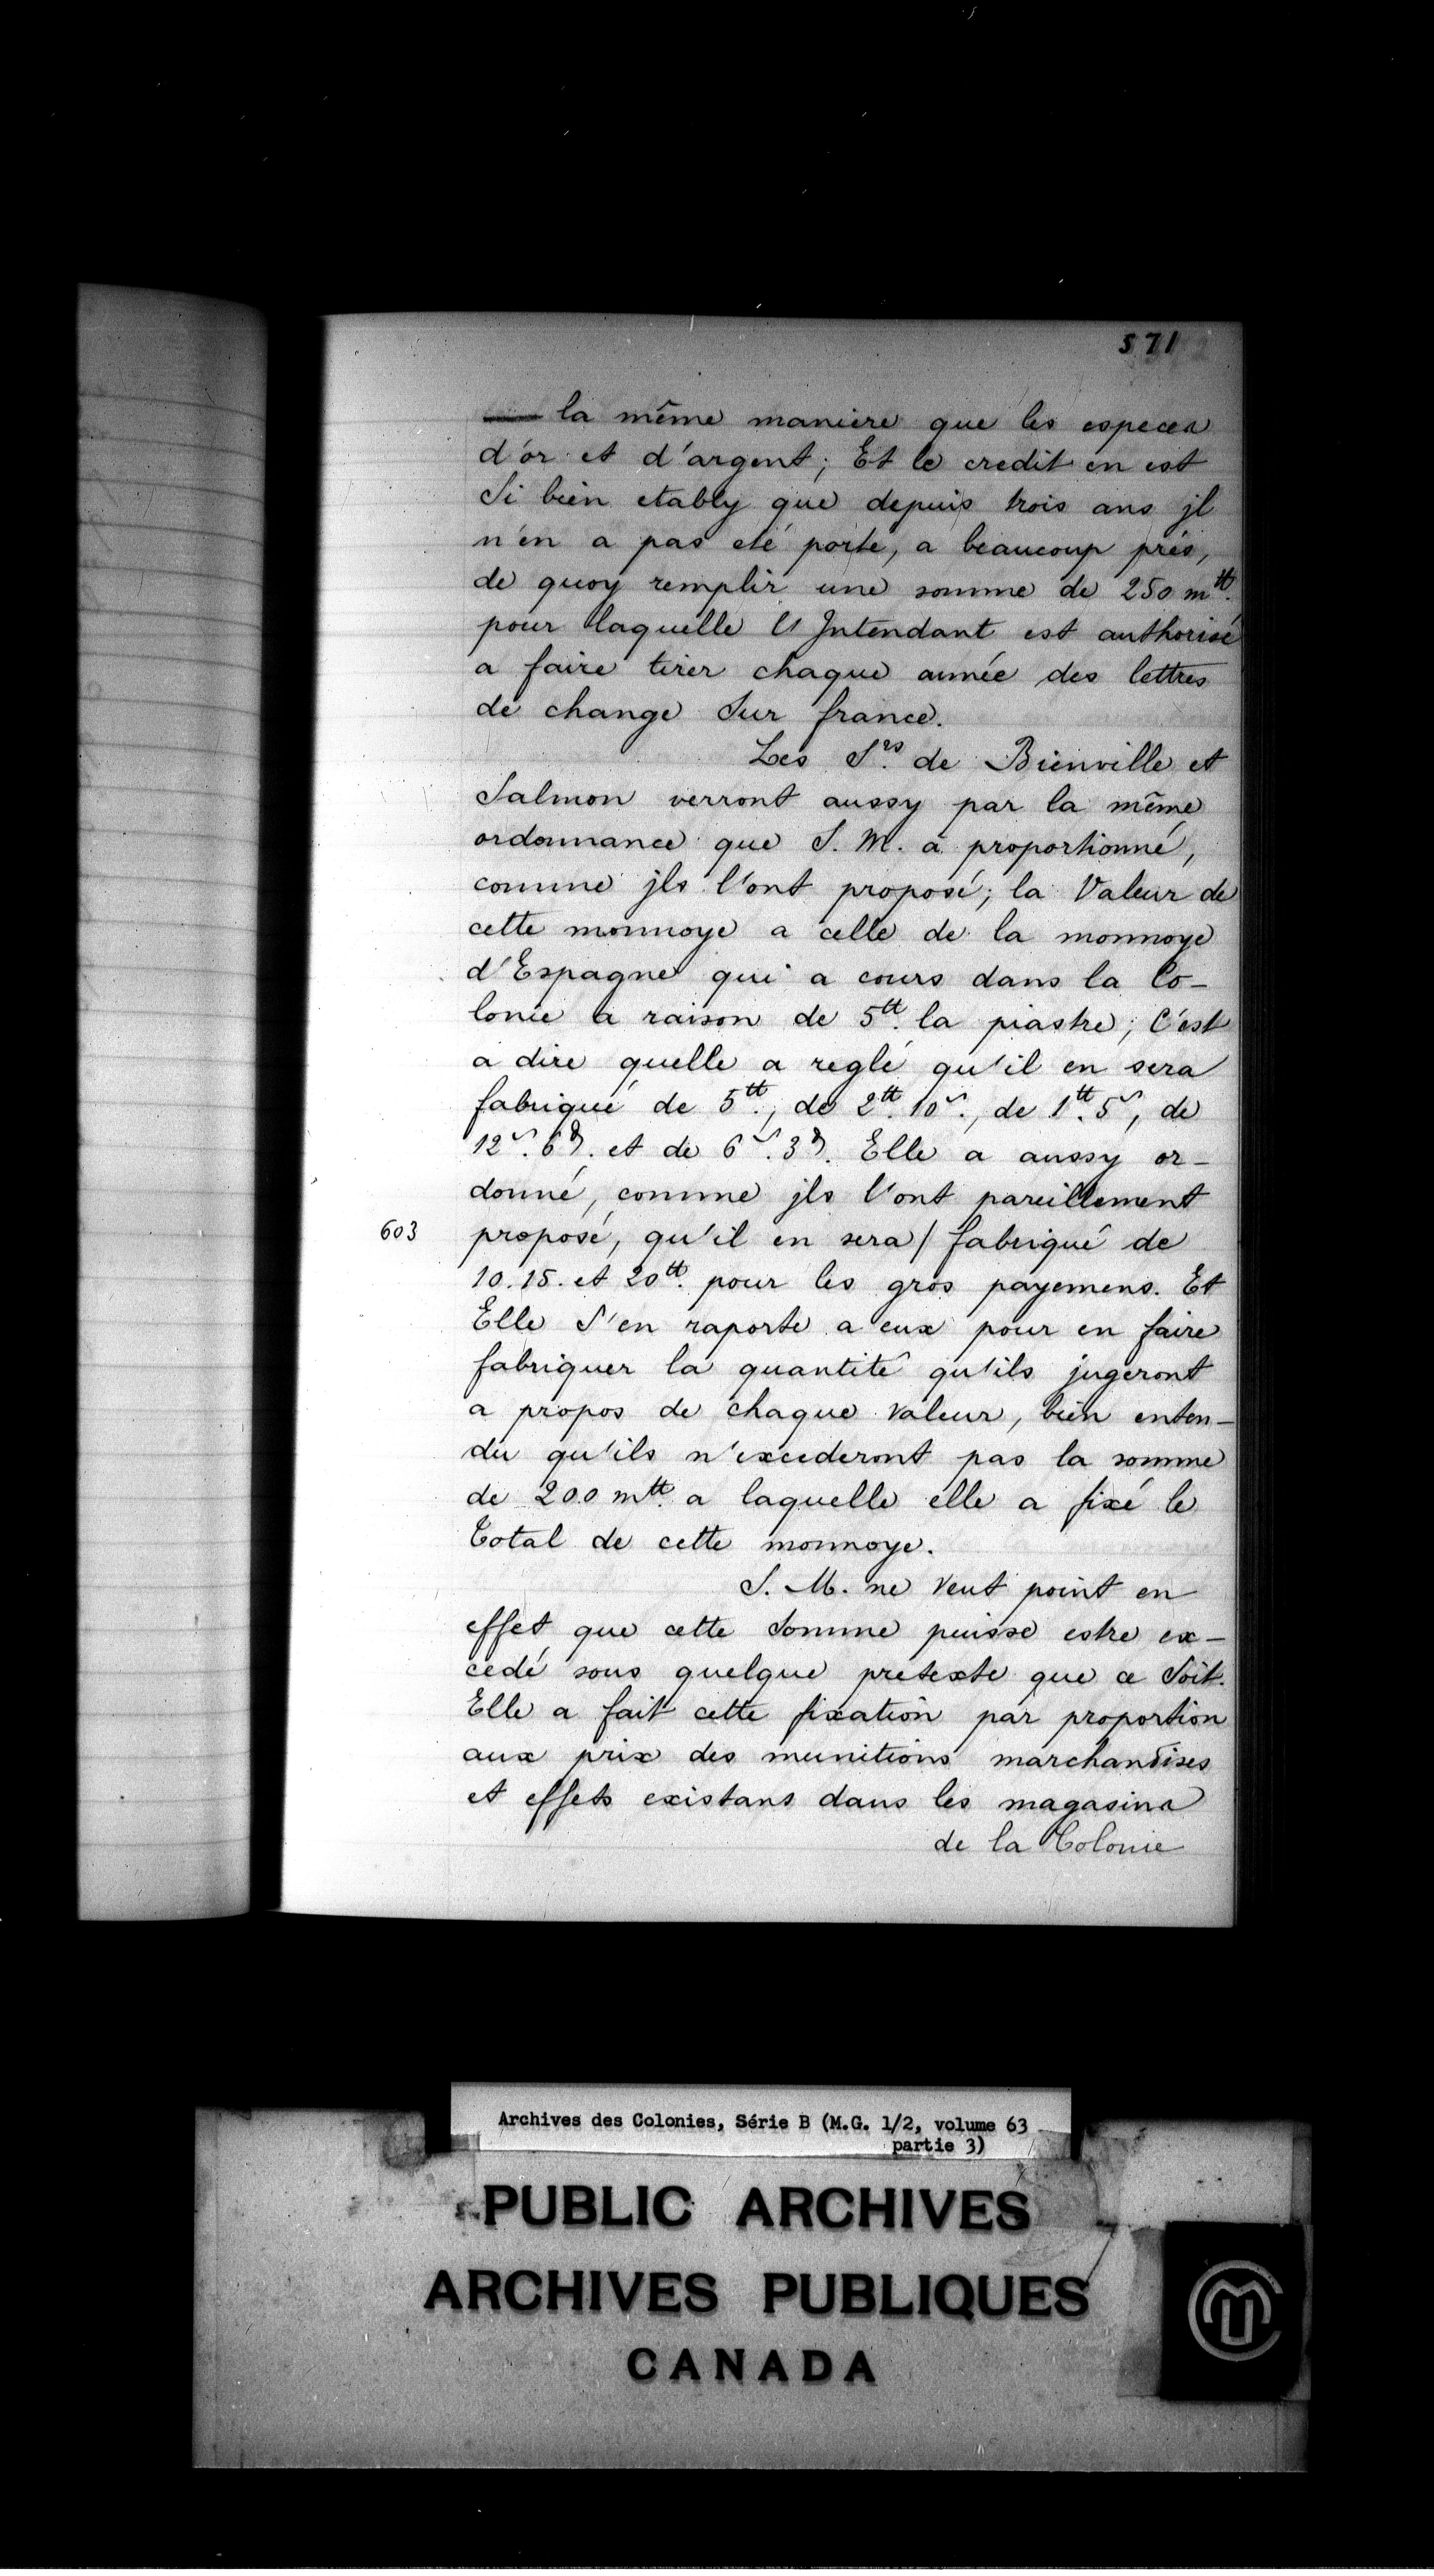 571
la même maniere que les especes
d'or et d'argent; Et le credit en est
Si bien etably que depuis trois ans jl
n'en a pas eté porté, a beaucoup prés,
de quoy remplir une somme de 250 m₶.
pour laquelle l'Intendant est authorisé
a faire tirer chaque année des lettres
de change Sur france.
Les Srs. de Bienville et
Salmon verront aussy par la même
ordonnance que S. M. a proportionné,
comme jls l'ont proposé; la Valeur de
cette monnoye a celle de la monnoye
d'Espagne qui a cours dans la Co-
lonie a raison de 5₶. la piastre; C'est
a dire quelle a reglé qu'il en sera
fabriqué de 5₶., de 2₶. 10s., de 1₶. 5s, de
12s. 6d. et de 6s. 3d. Elle a aussy or-
donné, comme jls l'ont pareillement
603 proposé, qu'il en sera / fabriqué de
10. 15. et 20₶. pour les gros payemens. Et
Elle S'en raporte a eux pour en faire
fabriquer la quantité qu'ils jugeront
a propos de chaque valeur, bien enten-
du qu'ils n'excederont pas la somme
de 200 m₶. a laquelle elle a fixé le
Total de cette monnoye.
S. M. ne Veut point en
effet que cette Somme puisse estre ex-
cedé sous quelque pretexte que ce Soit.
Elle a fait cette fixation par proportion
aux prix des munitions marchandises
et effets existans dans les magasins
de la Colonie
Archives des Colonies, Série B (M.G. 1/2, volume 63
partie 3)
PUBLIC ARCHIVES
ARCHIVES PUBLIQUES
CANADA